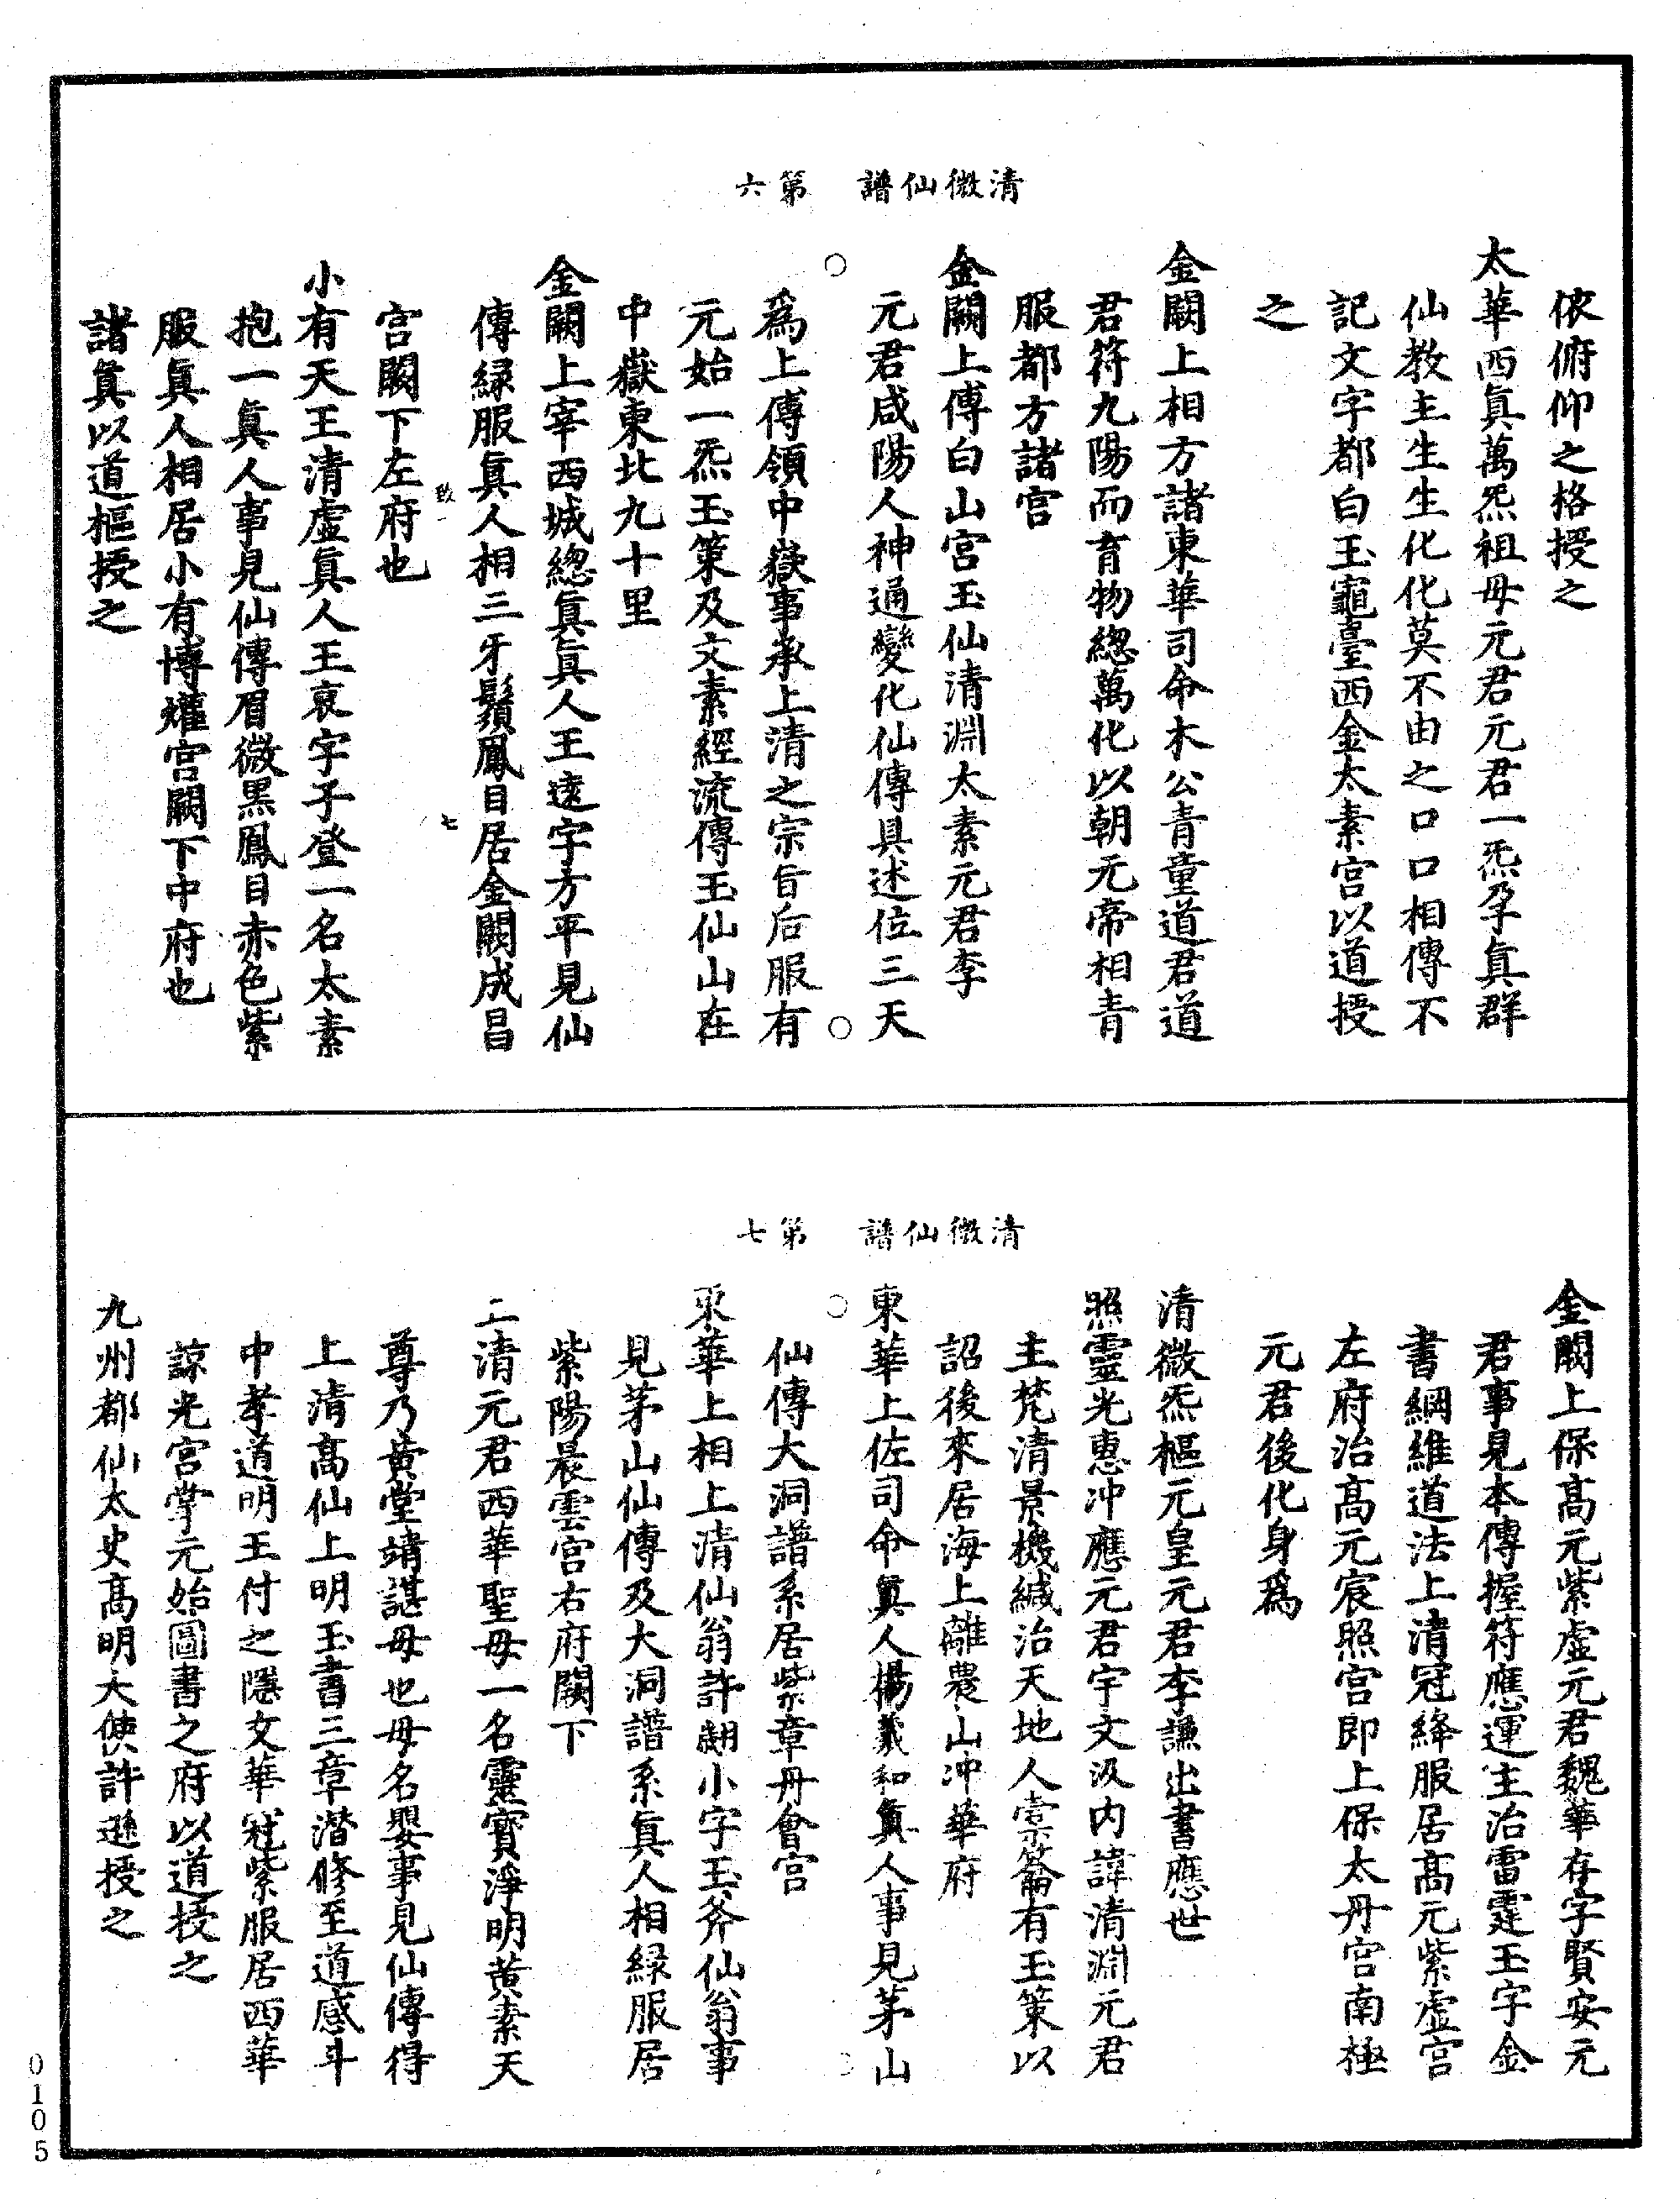 清微仙譜　第六
依俯仰之格授之
太華西眞萬炁祖母元君元君一炁孕眞群
仙教主生生化化莫不由之口口相傳不
記文字都白玉龜臺西金太素宮以道授
之
金闕上相方諸東華司命木公青童道君道
君符九陽而育物緫萬化以朝元帝相青
服都方諸宮
金闕上傅白山宮玉仙清淵太素元君李
元君咸陽人神通變化仙傳具述位三天
爲上傅領中嶽事承上清之宗旨后服有
元始一炁玉策及文素經流傳玉仙山在
中嶽東北九十里
金闕上宰西城緫眞眞人王遠字方平見仙
傳緑服眞人相三牙鬚鳳目居金闕成昌
宮闕下左府也
小有天王清虛眞人王裒字子登一名太素
抱一眞人事見仙傳眉微黑鳳目赤色紫
服眞人相居小有博爟宮闕下中府也
諸眞以道樞授之
清微仙譜　第七
金闕上保高元紫虛元君魏華存字賢安元
君事見本傳握符應運主治雷霆玉字金
書綱維道法上清冠絳服居高元紫虛宮
左府治高元宸照宮即上保太丹宮南極
元君後化身爲
清微炁樞元皇元君李謙出書應世
照靈光惠冲應元君宇文汲内諱清淵元君
主梵清景機緘治天地人橐籥有玉策以
詔後來居海上離農山冲華府
東華上佐司命眞人楊羲和眞人事見茅山
仙傳大洞譜系居紫章丹會宮
東華上相上清仙翁許翽小字玉斧仙翁事
見茅山仙傳及大洞譜系眞人相緑服居
紫陽晨雲宮右府闕下
上清元君西華聖母一名靈寳淨明黄素天
尊乃黄堂靖諶母也母名嬰事見仙傳得
上清高仙上明玉書三章潛修至道感斗
中孝道明王付之隱文華冠紫服居西華
諒光宮掌元始圖書之府以道授之
九州都仙太史高明大使許遜授之
0105